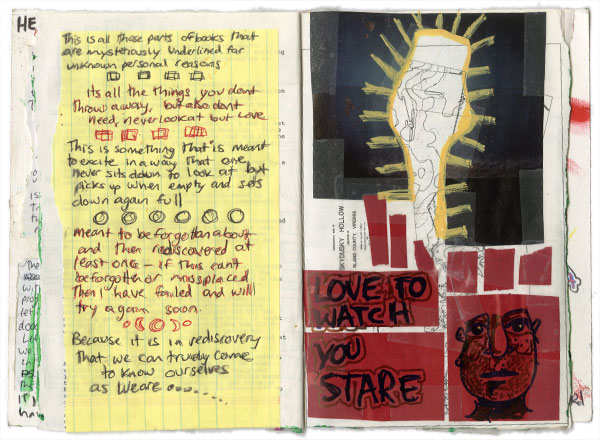 HE
This is all those parts of books that
are mysteriously underlined for
unknown personal reasons
Its all the things you dont
throw away, but also dont
need, never look at but Love
This is something that is meant
to excite in a way that one
never sits down to look at but
picks up when empty and sets
down again full
meant to be forgotten about
and then rediscovered at
least once - if this can't
be forgotten or missplaced
Then I have failed and will
try again soon.
Because it is in rediscovery
That we can truely come
to know ourselves
as we are.......
The
SKYDUSKY HOLLOW
BLAND COUNTY, VIRGINIA
LOVE TO
WATCH
YOU
STARE